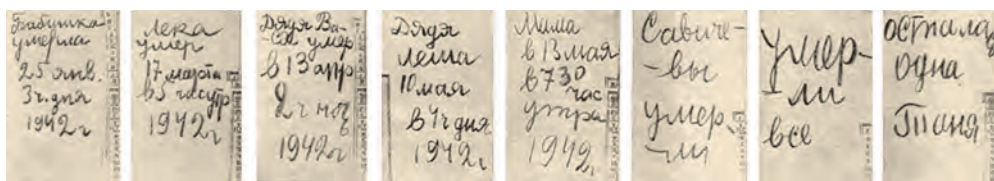 Бабушка
умерла
25 янв.
3ч. дня
1942 г
Лека
умер
17 марта
в 5 час утр
1942 г
Дядя Ва-
-ся умер
в 13 апр
2 ч ноч
1942 г
Дядя
Леша
10 мая
в 4 ч дня
1942 г
Мама
в 13 мая
в 7 30
час
утра
1942 г
Савиче-
-вы
умер-
-ли
умер-
-ли
все
осталас
одна
Таня